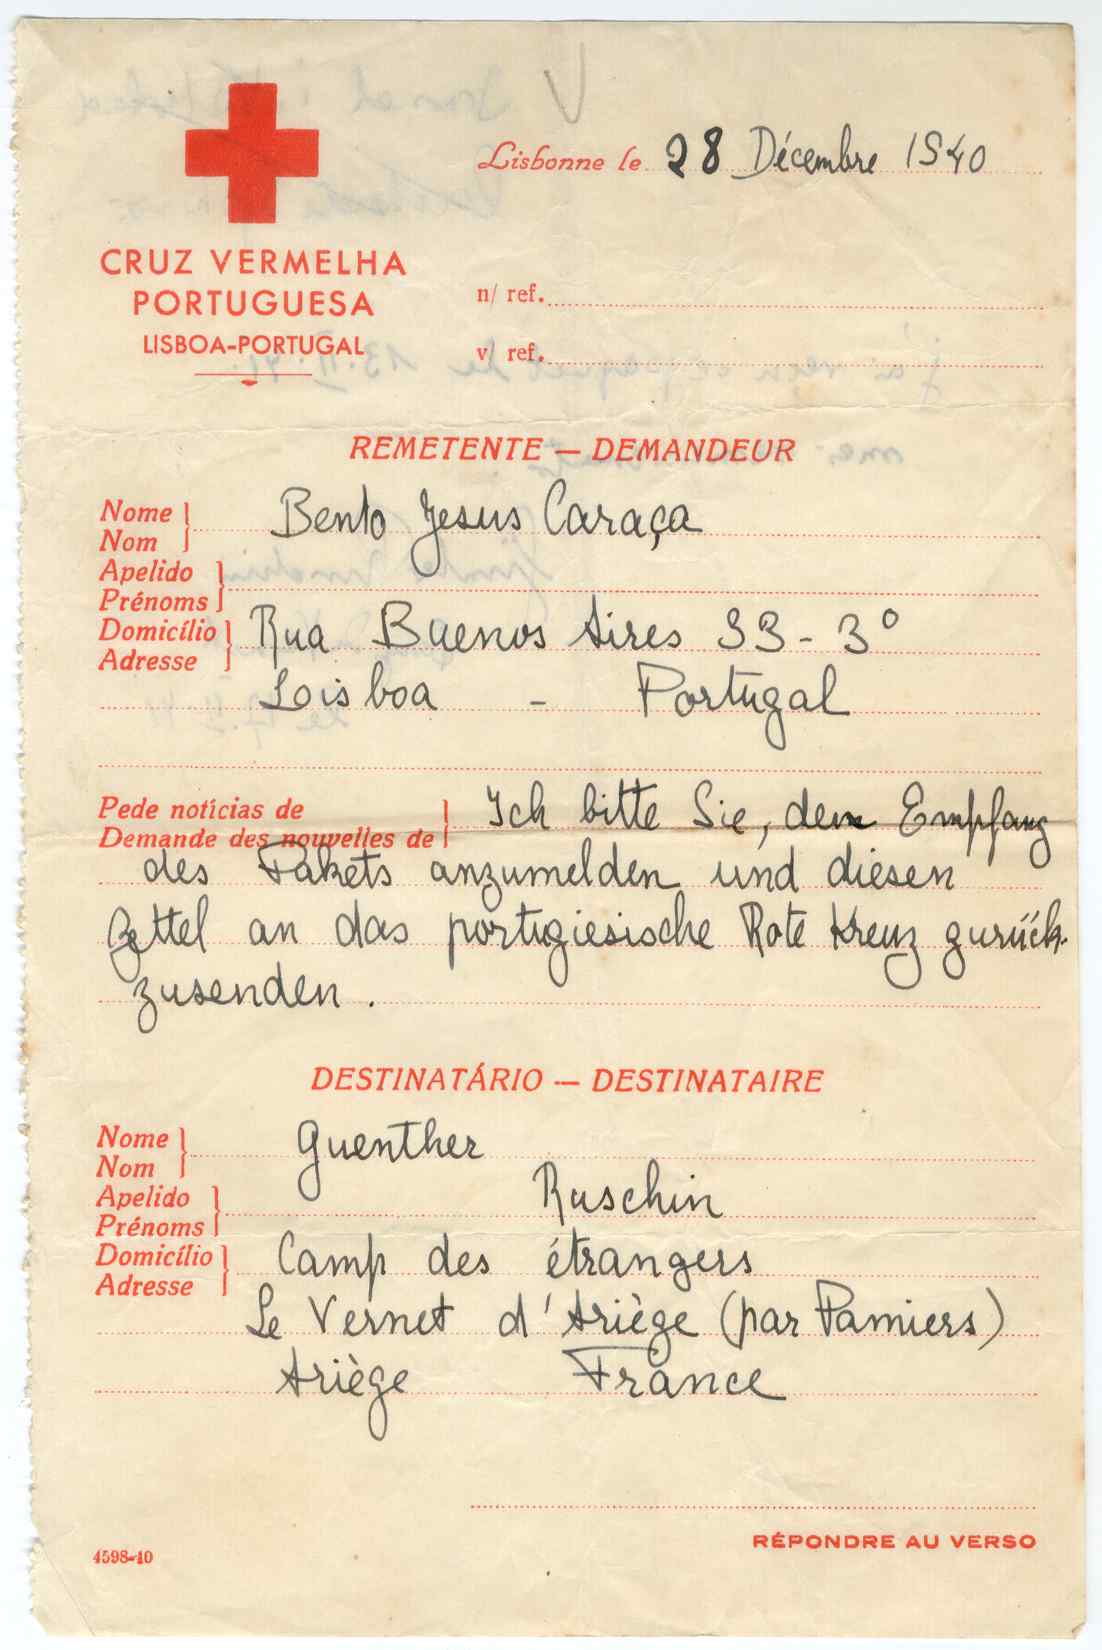 Lisbonne le 28 Décembre 1940
CRUZ VERMELHA
PORTUGUESA
LISBOA-PORTUGAL
n/ ref.
v/ ref.
REMETENTE — DEMANDEUR
Nome
Nom
Bento Jesus Caraça
Apelido
Prénoms
Domicílio
Adresse
Rua Buenos Aires 33 - 3º
Loisboa - Portugal
Pede notícias de
Demande des nouvelles de
Ich bitte Sie, den Empfang
des Pakets anzumelden und diesen
Zettel an das portugiesische Rote Kreuz zurück-
zusenden.
DESTINATÁRIO — DESTINATAIRE
Nome
Nom
Guenther
Apelido
Prénoms
Ruschin
Domicílio
Adresse
Camp des étrangers
Le Vernet d'Ariège (par Pamiers)
Ariège France
RÉPONDRE AU VERSO
4598-40